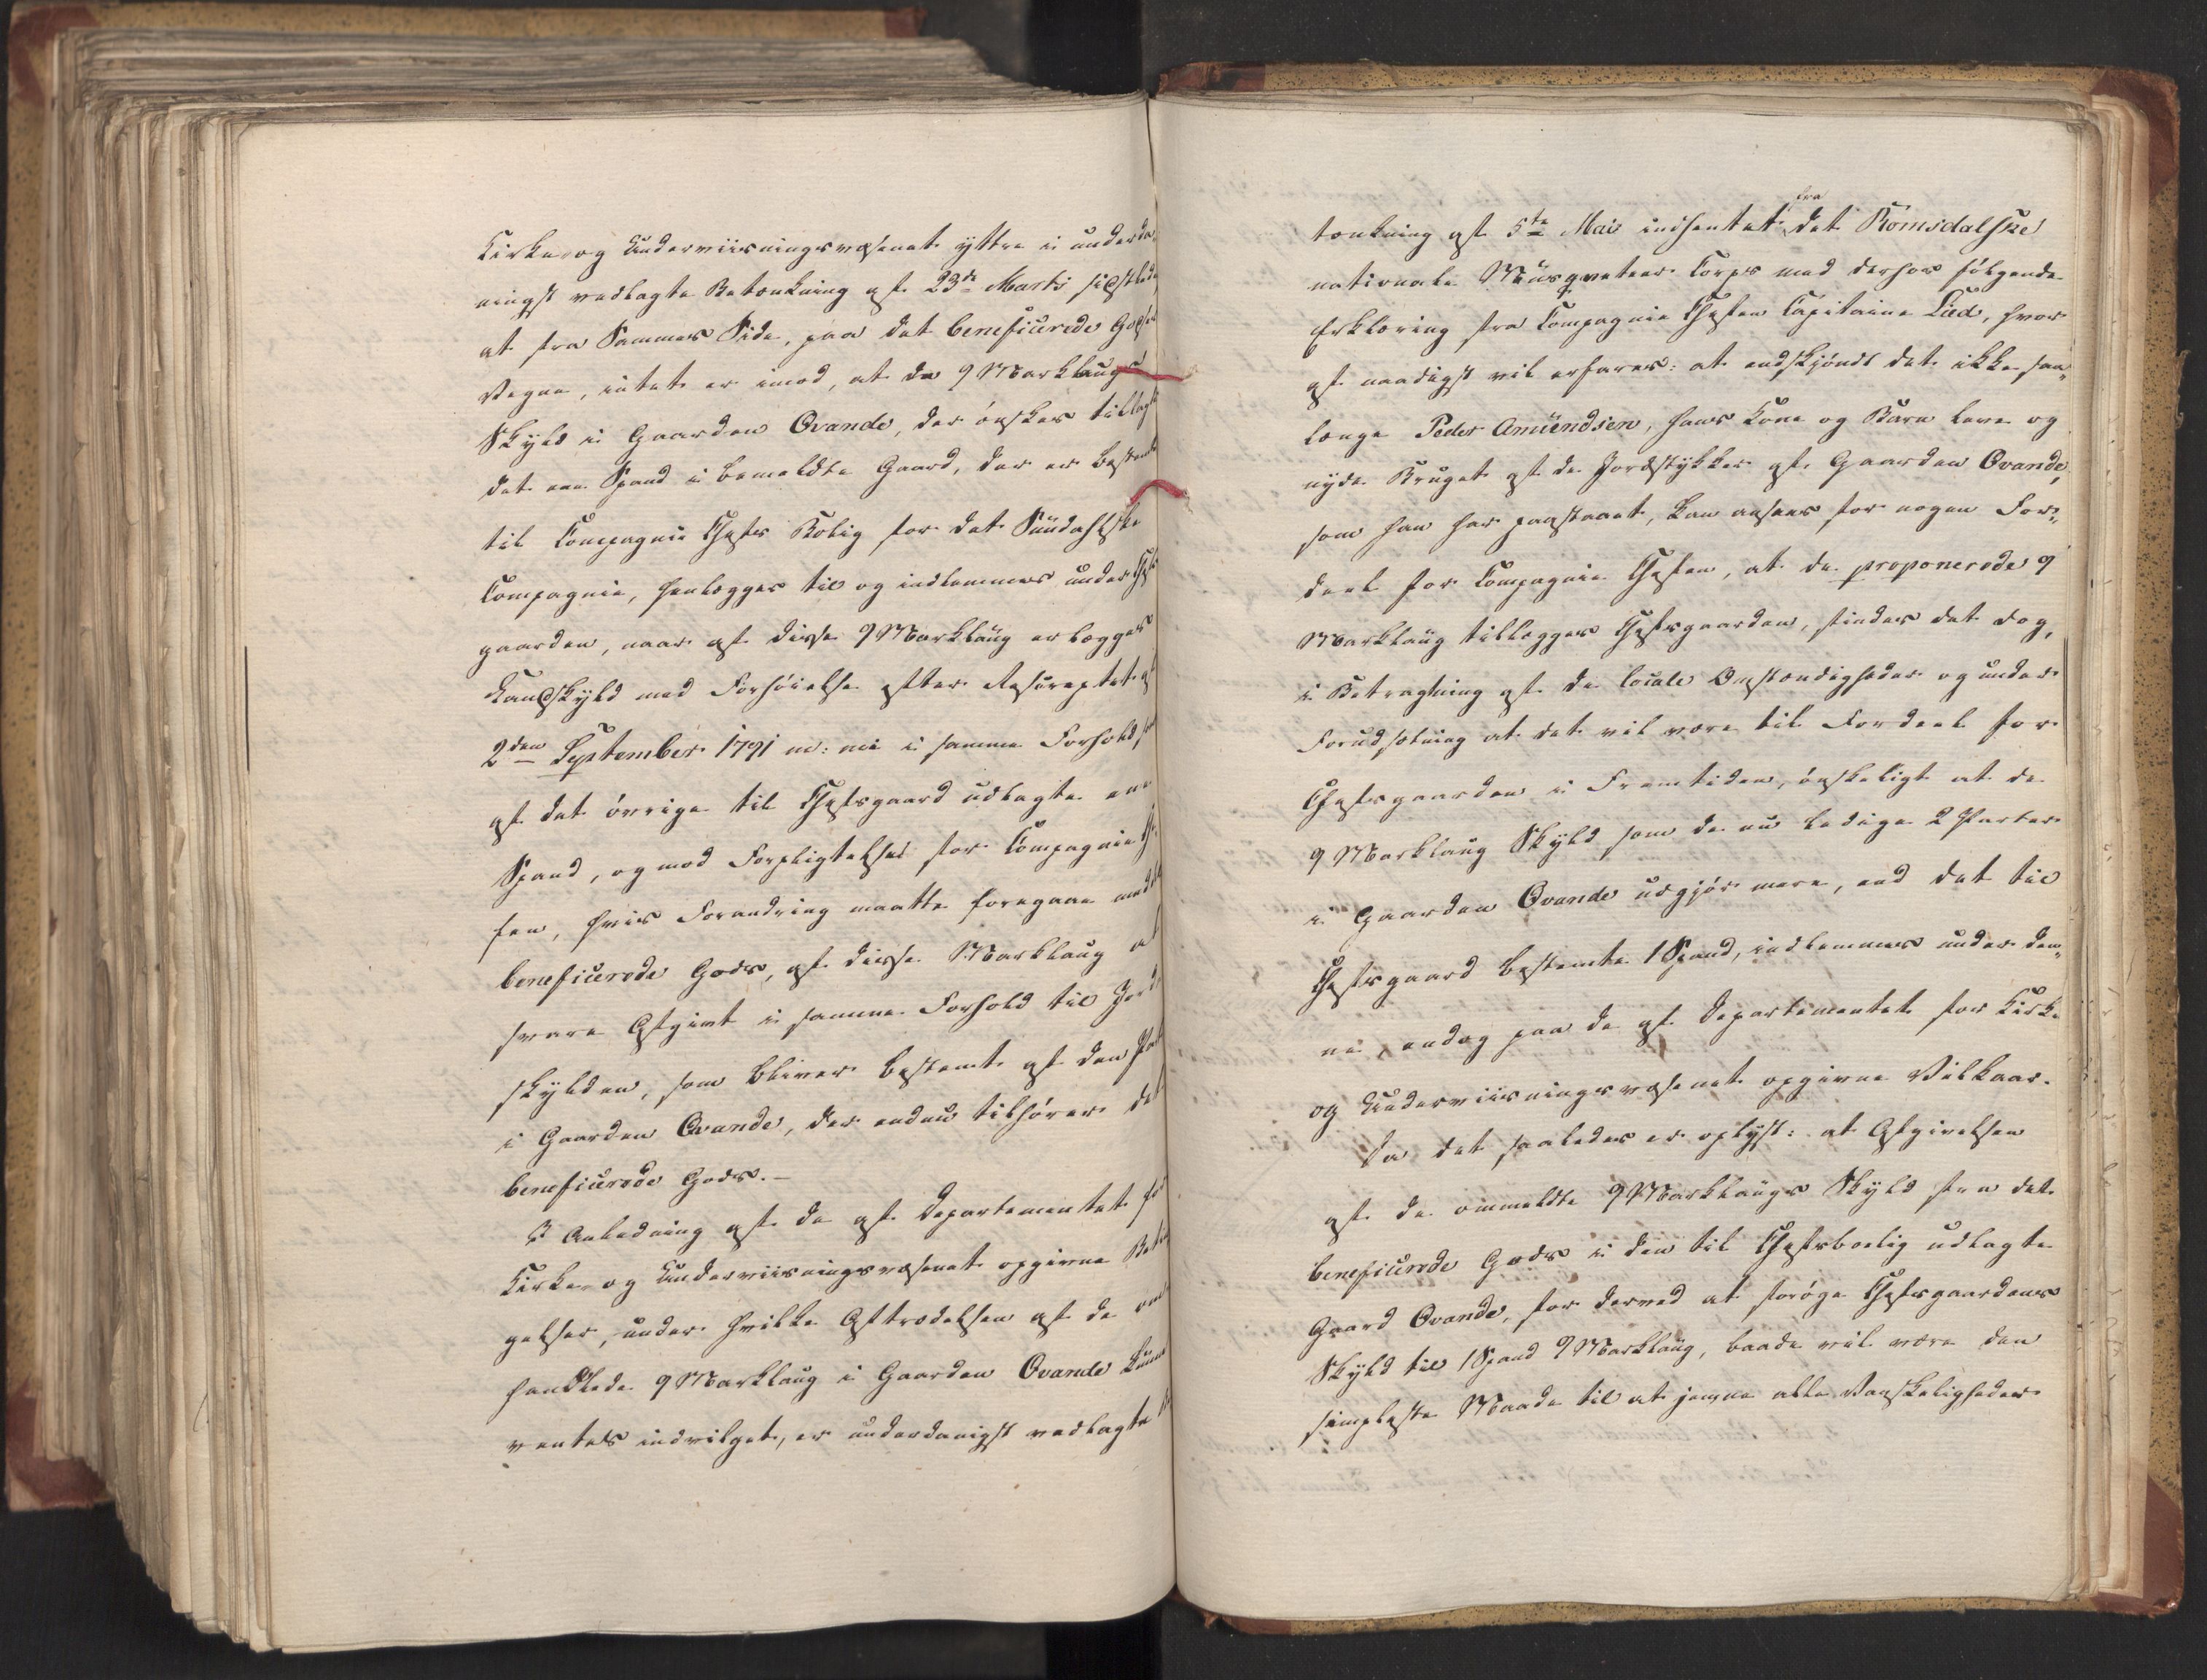 Kirke- og Underviisningsvæsenet yttre i underda-
nigst vedlagte Betænkning af 23de Marts sidstleden
at fra Sammes Side, paa det beneficerede Godses
Vegne, intet er imod, at de 9 Marklaugs
Skyld i Gaarden Ovande, der ønskes tillagt
det ene Spand i bemeldte Gaard, der er bestemt
til Compagnie Chefs Bolig for det Sundahlske
Compagnie, henlægges til og indlemmes under Chefs-
gaarden, naar af disse 9 Marklaug erlægges
Landskyld med Forhøielse efter Rescriptet af
2den September 1791 m: m: i samme Forhold som
af det øvrige til Chefsgaard udlagte ene
Spand, og mod Forpligtelse for Compagnie Che-
fen, hvis Forandring maatte foregaae med det
beneficerede Gods, af disse Marklaug at
svare Afgivt i samme Forhold til Jord-
skylden, som bliver bestemt af den Part
i Gaarden Ovande, der endnu tilhører det
beneficerede Gods.-
I Anledning af de af Departementet for
Kirke- og Underviisningsvæsenet opgivne Betin-
gelser, under hvilke Afstrædelsen af de om-
handlede 9 Marklaug i Gaarden Ovande kunne
ventes indvilget, er underdanigst vedlagte Be-
tænkning af 5te Mai indhentet fra det Romsdalske
nationale Musqveteer Corps med derhos følgende
Erklæring fra Compagnie Chefen Capitaine Lied, hvor-
af naadigst vil erfares: at endskjøndt det ikke saa-
længe Peder Amundsen, hans Kone og Børn leve og
nyde Bruget af de Jordstykker af Gaarden Ovande,
som han har paastaaet, kan ansees for nogen For-
deel for Compagnie Chefen, at de proponerede 9
Marklaug tillægges Chefsgaarden, findes det dog,
i Betragtning af de locale Omstændigheder og under
Forudsætning at det vil være til Fordeel for
Chefsgaarden i Fremtiden, ønskeligt at de
9 Marklaug Skyld som de nu ledige 2 Parter
i Gaarden Ovande udgjør mere, end det til
Chefsgaard bestemte 1 Spand, indlemmes under den-
ne, endog paa de af Departementet for Kirke
og Underviisningsvæsenet opgivne Vilkaar.
Da det saaledes er oplyst: at Afgivelsen
af de ommeldte 9 Marklaugs Skyld fra det
beneficerede Gods i den til Chefsboelig udlagte
Gaard Ovande, for derved at forøge Chefsgaardens
Skyld til 1 Spand 9 Marklaug, baade vil være den
simpleste Maade til at jevne alle Vanskeligheder